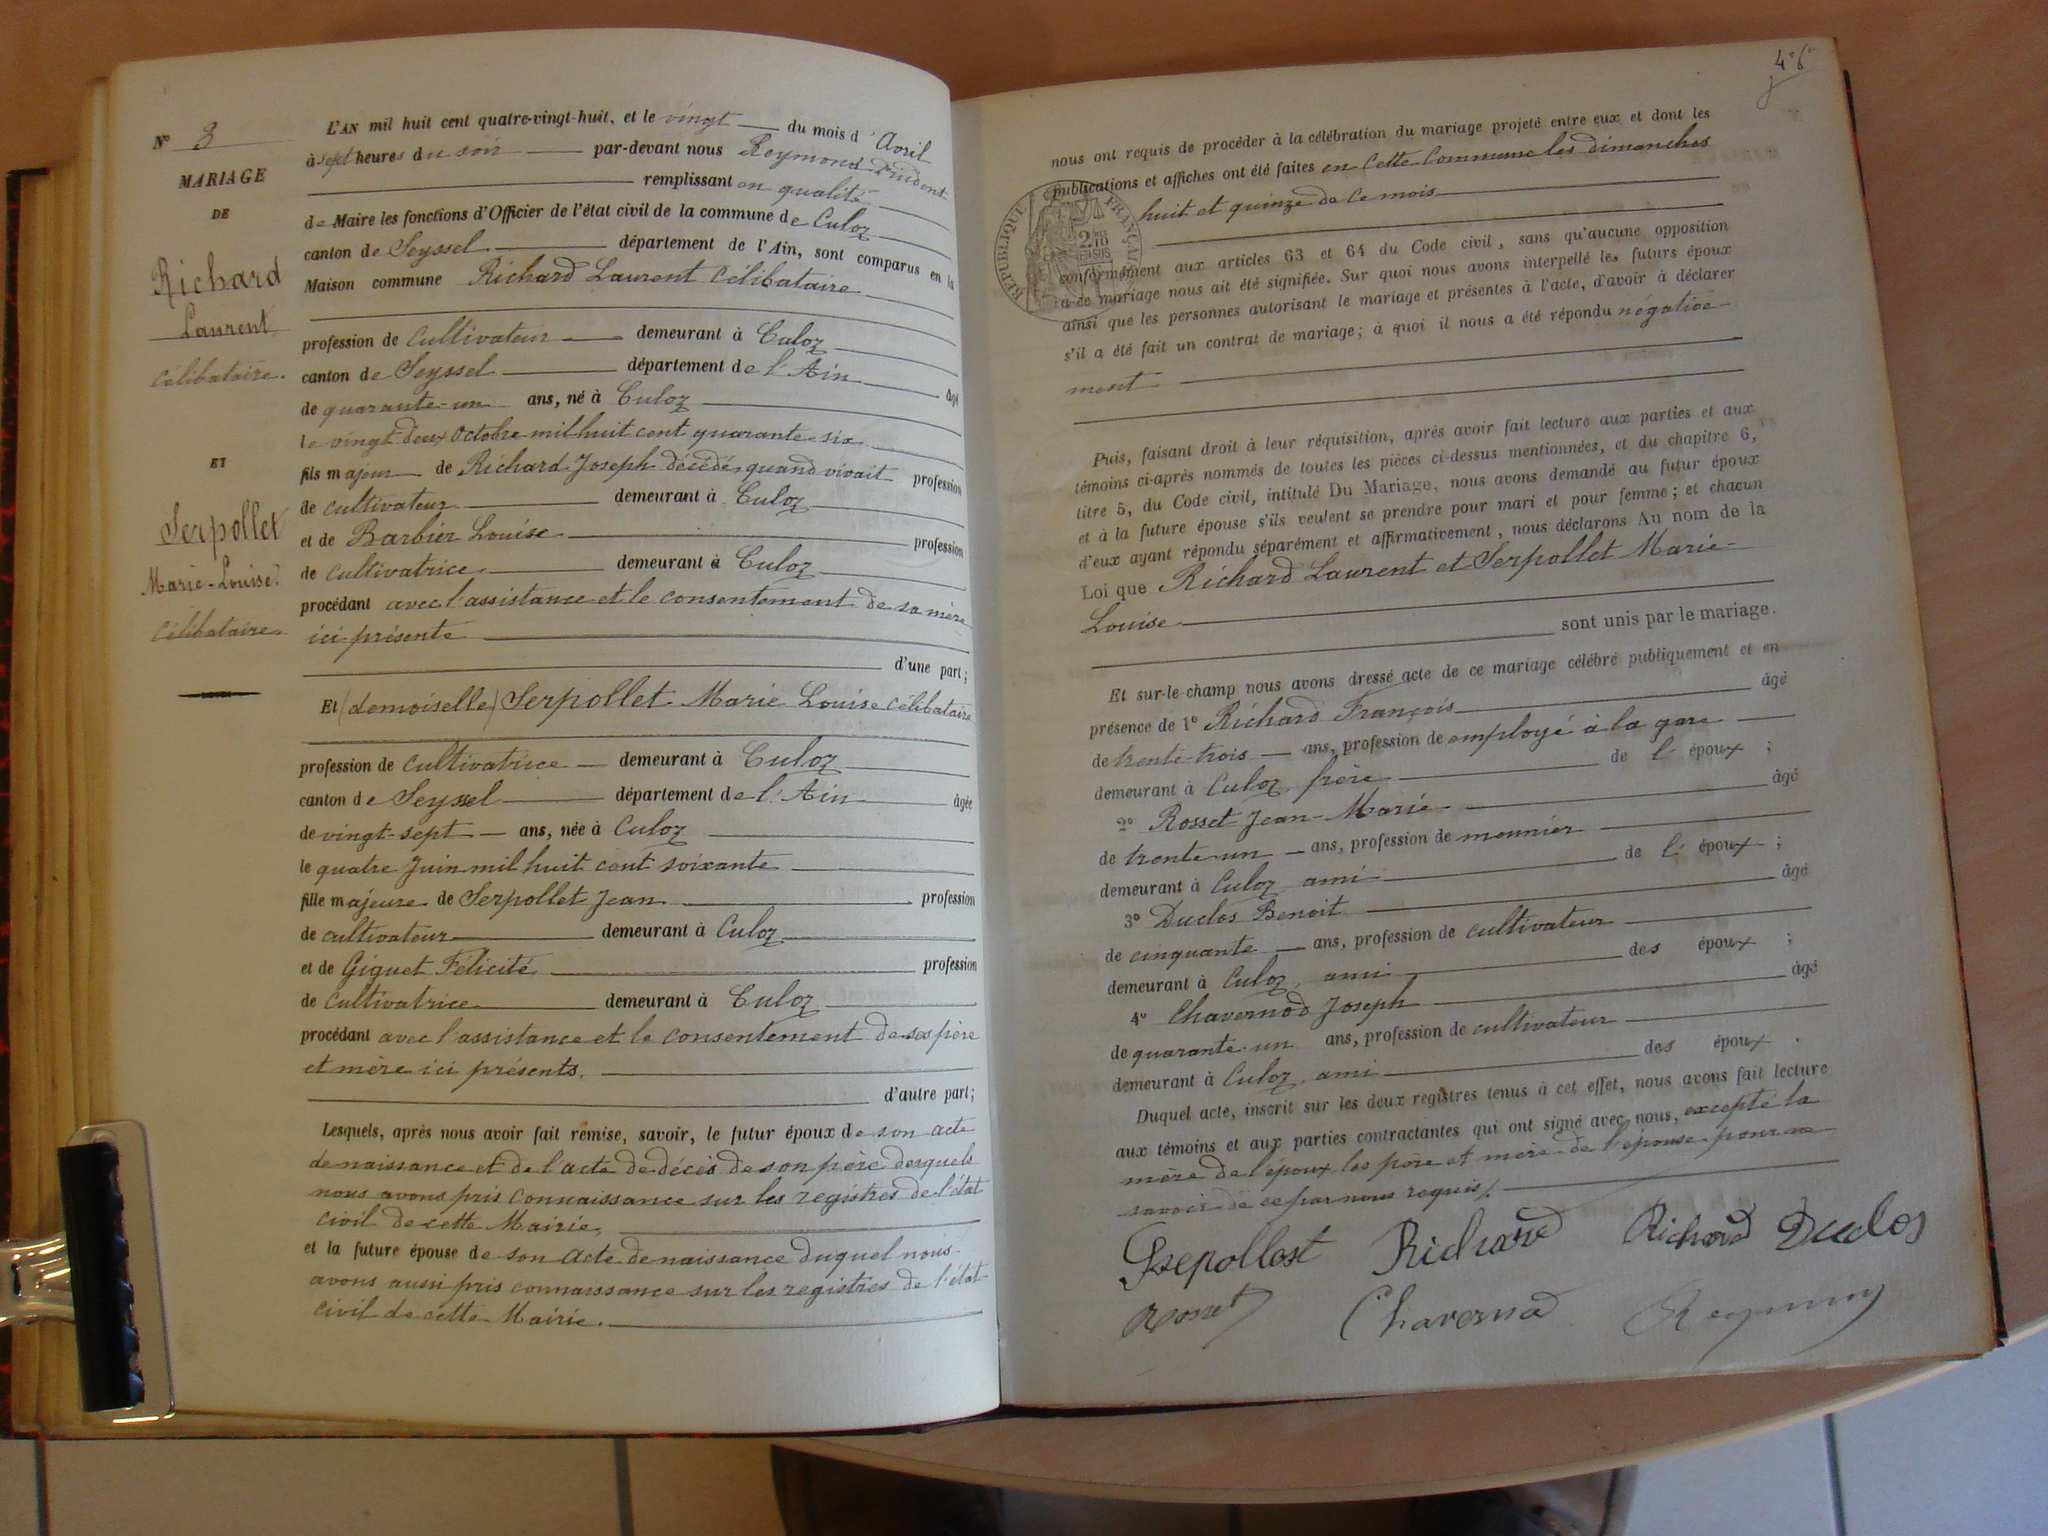 N° 3
MARIAGE
DE
Richard
Laurent
célibataire.
ET
Serpollet
Marie-Louise
célibataire.
L'AN mil huit cent quatre-vingt-huit, et le vingt du mois d'Avril
à sept heures du soir par-devant nous Reymond
remplissant en qualité
de Maire les fonctions d'Officier de l'état civil de la commune de Culoz
canton de Seyssel département de l'Ain, sont comparus en la
Maison commune Richard Laurent célibataire
profession de cultivateur demeurant à Culoz
canton de Seyssel département de l'Ain âgé
de quarante-un ans, né à Culoz
le vingt-deux Octobre mil huit cent quarante-six
fils majeur de Richard Joseph décédé, quand vivait profession
de cultivateur demeurant à Culoz
et de Barbier Louise profession
de cultivatrice demeurant à Culoz
procédant avec l'assistance et le consentement de sa mère
ici présente
d'une part;
Et (demoiselle) Serpollet Marie Louise célibataire
profession de cultivatrice demeurant à Culoz
canton de Seyssel département de l'Ain âgée
de vingt-sept ans, née à Culoz
le quatre Juin mil huit cent soixante
fille majeure de Serpollet Jean profession
de cultivateur demeurant à Culoz
et de Giguet Félicité profession
de cultivatrice demeurant à Culoz
procédant avec l'assistance et le consentement de ses père
et mère ici présents.
d'autre part;
Lesquels, après nous avoir fait remise, savoir, le futur époux de son acte
de naissance et de l'acte de décès de son père desquels
nous avons pris connaissance sur les registres de l'état
civil de cette Mairie,
et la future épouse de son acte de naissance duquel nous
avons aussi pris connaissance sur les registres de l'état
civil de cette Mairie.
nous ont requis de procéder à la célébration du mariage projeté entre eux et dont les
publications et affiches ont été faites en cette commune les dimanches
huit et quinze de ce mois
RÉPUBLIQUE FRANÇAISE
conformément aux articles 63 et 64 du Code civil, sans qu'aucune opposition
à ce mariage nous ait été signifiée. Sur quoi nous avons interpellé les futurs époux
ainsi que les personnes autorisant le mariage et présentes à l'acte, d'avoir à déclarer
s'il a été fait un contrat de mariage; à quoi il nous a été répondu négative
ment
Puis, faisant droit à leur réquisition, après avoir fait lecture aux parties et aux
témoins ci-après nommés de toutes les pièces ci-dessus mentionnées, et du chapitre 6,
titre 5, du Code civil, intitulé Du Mariage, nous avons demandé au futur époux
et à la future épouse s'ils veulent se prendre pour mari et pour femme; et chacun
d'eux ayant répondu séparément et affirmativement, nous déclarons Au nom de la
Loi que Richard Laurent et Serpollet Marie-
Louise
sont unis par le mariage.
Et sur-le-champ nous avons dressé acte de ce mariage célébré publiquement et en
présence de 1° Richard François âgé
de trente-trois ans, profession de employé à la gare
demeurant à Culoz, frère de l'époux;
2° Rosset Jean-Marie âgé
de trente-un ans, profession de meunier
demeurant à Culoz, ami de l'époux;
3° Duclos Benoit âgé
de cinquante ans, profession de cultivateur
demeurant à Culoz, ami des époux;
4° Chavernod Joseph âgé
de quarante-un ans, profession de cultivateur
demeurant à Culoz, ami des époux.
Duquel acte, inscrit sur les deux registres tenus à cet effet, nous avons fait lecture
aux témoins et aux parties contractantes qui ont signé avec nous, excepté la
mère de l'époux les père et mère de l'épouse pour ne
savoir de ce par nous requis.
Richard Richard Duclos
Rosset Chavernod Reymond